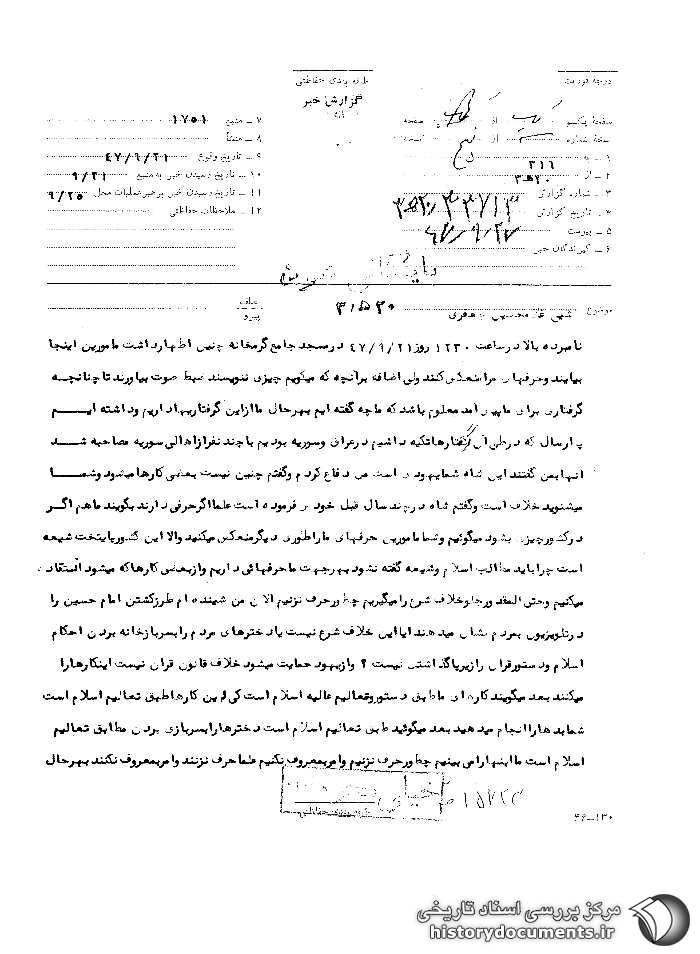 درجه فوریت
طبقه بندی حفاظتی
گزارش خبر
صفحه یکم از صفحه
نسخه شماره از نسخه
۱ ـ به ۳۱۶
۲ ـ از ۳هـ۲۰
۳ ـ شماره گزارش
۴ ـ تاریخ گزارش ۴۷/۹/۲۷
۵ ـ پیوست
۶ ـ گیرندگان خبر
۷ ـ منبع ۱۷۵۱
۸ ـ منشأ
۹ ـ تاریخ وقوع ۴۷/۹/۲۱
۱۰ ـ تاریخ رسیدن خبر به منبع ۹/۲۱
۱۱ ـ تاریخ رسیدن خبر برهبرعملیات محل ۹/۲۵
۱۲ ـ ملاحظات حفاظتی
موضوع
عطف
پیرو
نامبرده بالا درساعت ۱۲۳۰ روز ۴۷/۹/۲۱ درمسجد جامع گرمخانه چنین اظهارداشت مامورین اینجا
بیایند وحرفهای مرامنعکس کنند ولی اضافه برآنچه که میگویم چیزی ننویسند ضبط صوت بیاورند تا چنانچه
گرفتاری برای ما پیش آمد معلوم باشد که ما چه گفته ایم بهرحال ما ازاین گرفتاریها داریم وداشته ایم
پارسال که درطی آن گفتارها تکیه داشتیم درعراق وسوریه بودیم با چند نفرازاهالی سوریه مصاحبه شد
آنها بمن گفتند این شاه شما یهودی است من دفاع کردم وگفتم چنین نیست بعضی کارها میشود وشما
میشنوید خلاف است وگفتم شاه در چند سال قبل خود فرموده است علما اگرحرفی دارند بگویند ما هم اگر
درکشورچیزی بشود میگوئیم وشما مامورین حرفهای ما را طوری دیگرمنعکس میکنید والا این کشورپایتخت شیعه
است چرا باید مطالب اسلام وشیعه گفته نشود بهرجهت ما حرفهائی داریم وازبعضی کارها که میشود انتقاد
میکنیم وحتی المقدورجلوخلاف شرع را میگیریم چطورحرف نزنیم الان من شنیده ام طرزکشتن امام حسین را
درتلویزیون بمردم نشان میدهند آیا این خلاف شرع نیست یا دخترهای مردم را بسربازخانه بردن احکام
اسلام ودستورقرآن را زیرپا گذاشتن نیست ؟ وازیهود حمایت میشود خلاف قانون قرآن نیست اینکارها را
میکنند بعد میگویند کارهای ما طبق دستوروتعالیم عالیه اسلام است کی این کارها طبق تعالیم اسلام است
شما بدها را انجام میدهید بعد میگوئید طبق تعالیم اسلام است دخترها را بسربازی بردن مطابق تعالیم
اسلام است ما اینها را می بینیم چطورحرف نزنیم وامربمعروف نکنیم علما حرف نزنند وامربمعروف نکنند بهرحال
طبقه بندی حفاظتی
۴۶ـ۱۳۰
مرکز بررسی اسناد تاریخی
historydocuments.ir